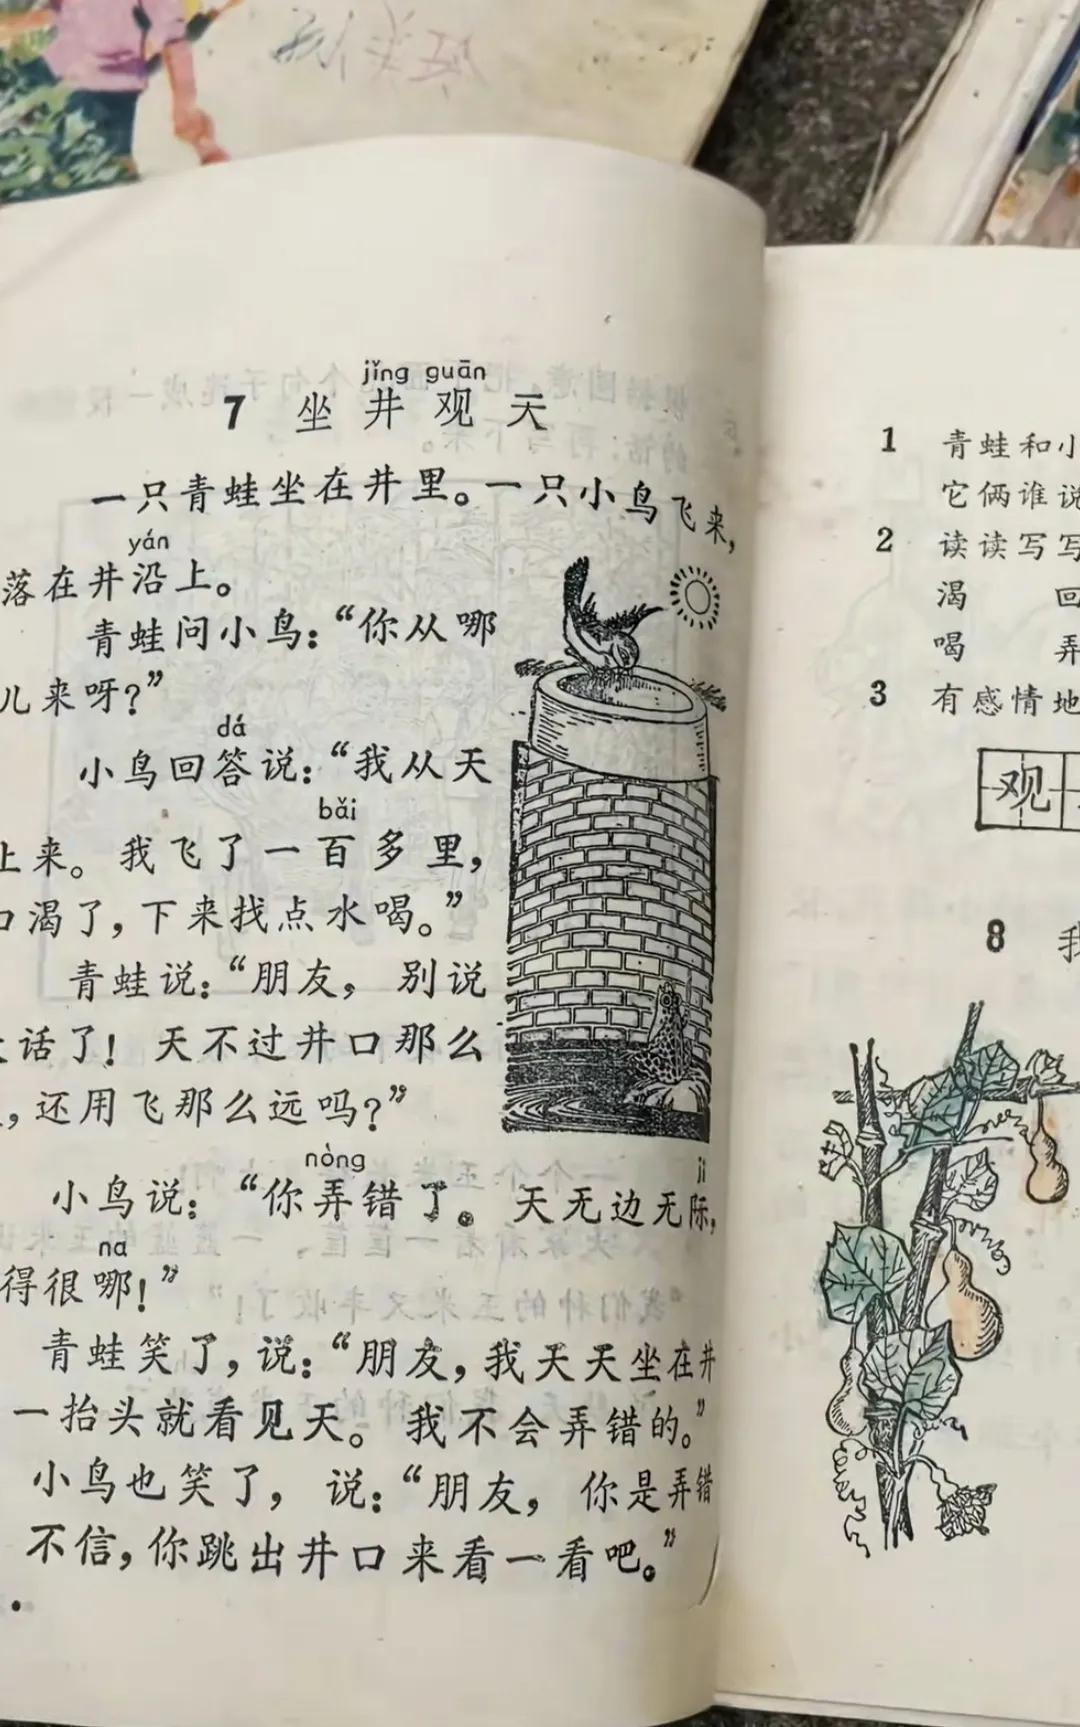 jǐng guān
7 坐井观天
一只青蛙坐在井里。一只小鸟飞来,
yán
落在井沿上。
青蛙问小鸟:“你从哪
儿来呀?”
dá
小鸟回答说:“我从天
bǎi
上来。我飞了一百多里,
口渴了,下来找点水喝。”
青蛙说:“朋友,别说
话了!天不过井口那么
,还用飞那么远吗?”
nòng jì
小鸟说:“你弄错了。天无边无际,
na
得很哪!”
青蛙笑了,说:“朋友,我天天坐在井
一抬头就看见天。我不会弄错的。”
小鸟也笑了,说:“朋友,你是弄错
不信,你跳出井口来看一看吧。”
1 青蛙和小
它俩谁说
2 读读写写
渴 回
喝 弄
3 有感情地
观
8 我